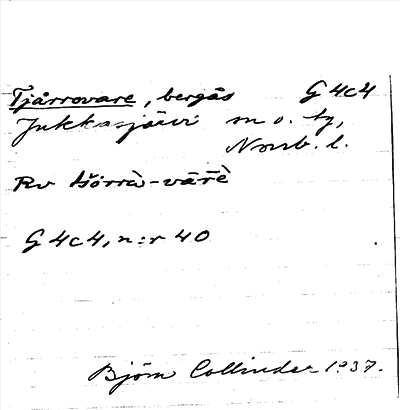 Tjårrovare, bergås G 4c4
Jukkasjärvi sn o. tg,
Norrb. l.
Rv tšŏrrà-vārḕ
G 4c4, n:r 40
Björn Collinder 1937.